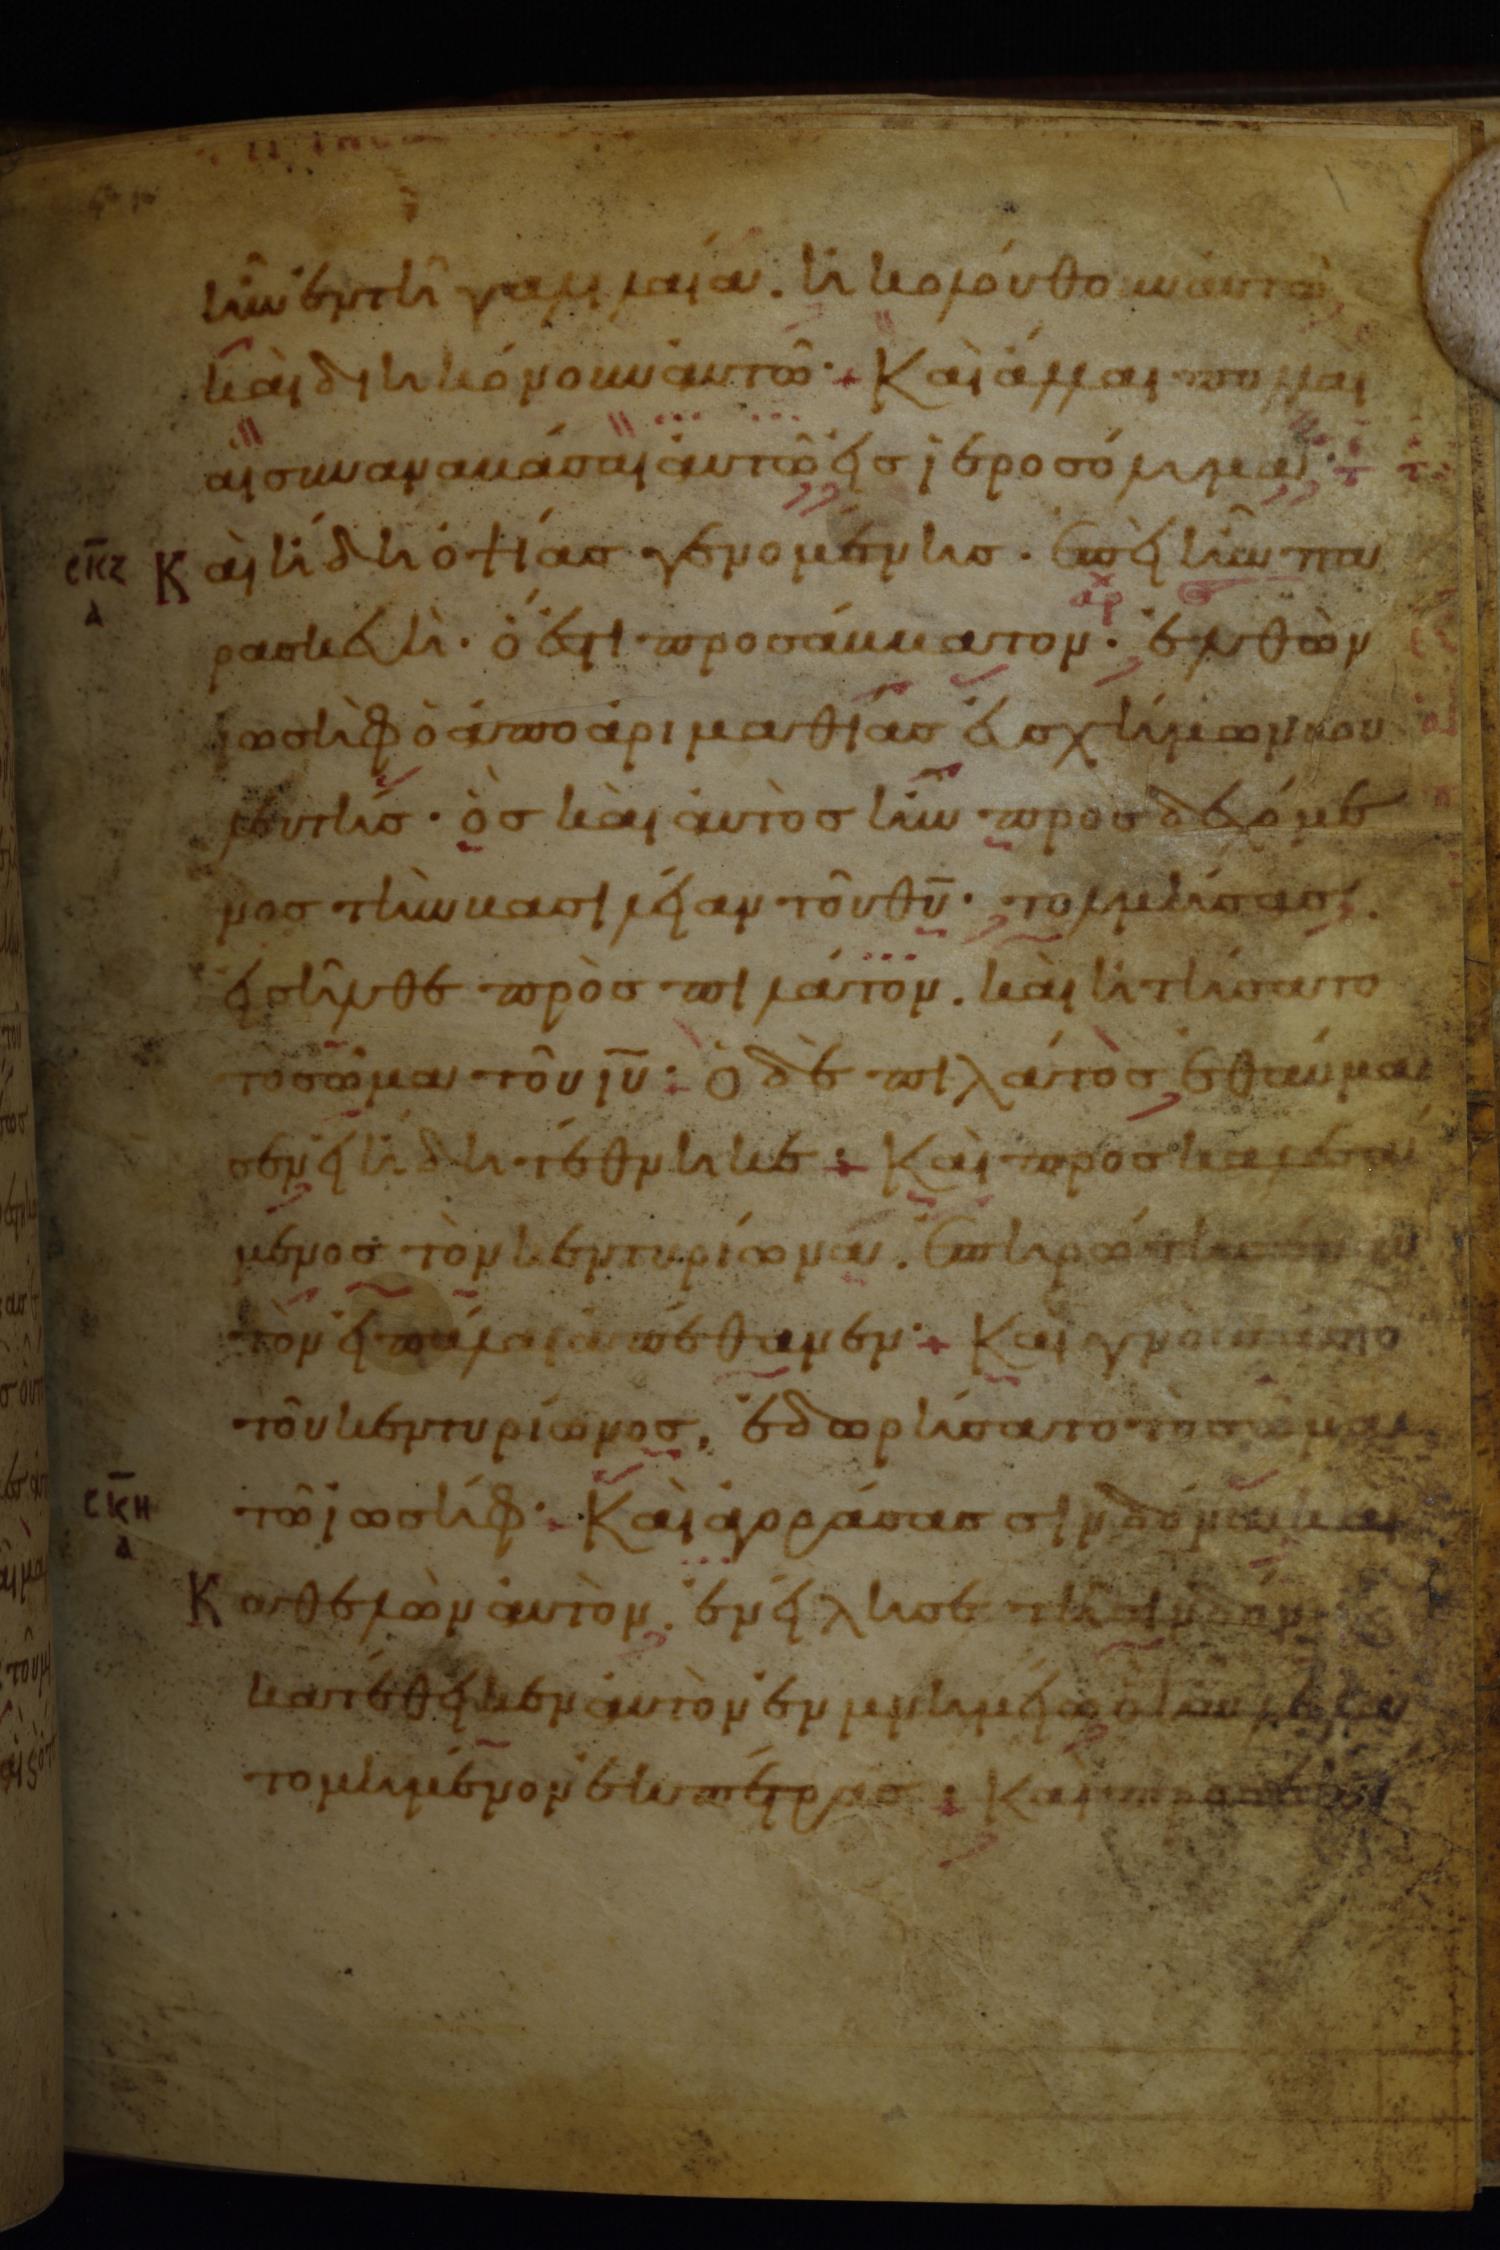 ἦν ἐν τῆ γαλιλαία. ἠκολούθουν αυτῶ
καὶ διηκόνουν αὐτῶ· + Καὶ ἄλλαι πολλαὶ
αἱ συναναβάσαι αὐτῶ εἰς ἱεροσόλυμα·
σκζ Καὶ ἤδη ὀψίας γενομένης. ἐπεὶ ἦν πα
δ
ρασκευὴ· ὅ ἐστι προσάββατον· ἐλθὼν
αρχ
ἰωσὴφ ὁ ἀπὸ ἀριμαθίας εὐσχήμων βου
λευτής· ὃς καὶ αὐτὸς ἦν προσδεχόμε
νος τὴν βασιλείαν τοῦ θυ· τολμήσας.
εἰσῆλθε πρὸς πιλάτον. καὶ ἠτήσατο
τὸ σῶμα τοῦ ιυ· Ὁ δὲ πιλάτος ἐθαύμα
σεν εἰ ἤδη τέθνηκε: + Καὶ προσκαλεσά
μενος τὸν κεντυρίωνα. ἐπηρώτησεν αὐ
τὸν εἰ πάλαι ἀπέθανεν· + Καὶ γνοὺς ἀπὸ
τοῦ κεντυρίωνος, ἐδωρήσατο τὸ σῶμα
τῶ ἰωσήφ· Καὶ ἀγοράσας σινδόνα καὶ
σκη
δ
Καθελὼν αὐτὸν. ἐνείλησε τῆ σινδόνι
κατέθηκεν αὐτὸν ἐν μνημείω ὃ ἦν λελα
τομημένον ἐκ πέτρας: + Καὶ προσεκύ